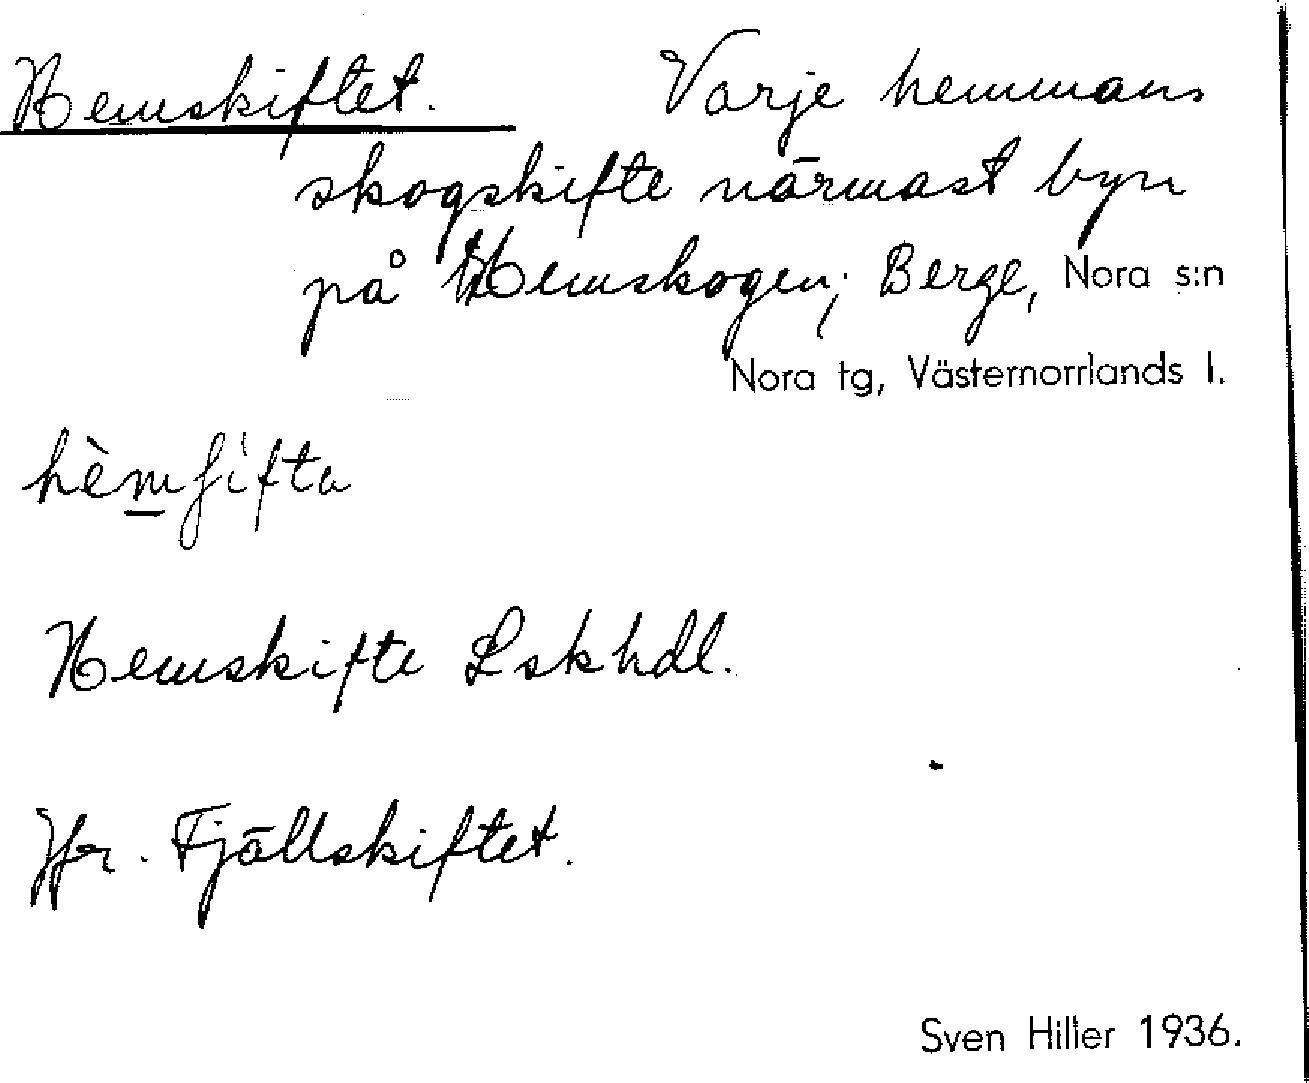 Hemskiftet. Varje hemmans
skogskifte närmast byn
på Hemskogen; Berge, Nora s:n
Nora tg, Västernorrlands l.
hèmʃìfta
Hemskifte Lskhdl.
Jfr. Fjällskiftet.
Sven Hiller 1936.